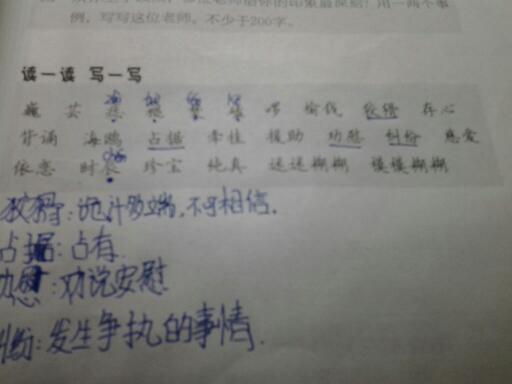 例，写写这位老师。不少于200字。
读一读 写一写
巍 芸 偷伐 狡猾 存心
背诵 海鸥 占据 牵挂 援助 劝慰 纠纷 慈爱
依恋 时辰 珍宝 纯真 迷迷糊糊 模模糊糊
狡猾：诡计多端，不可相信。
占据：占有．
劝慰：劝说安慰
纷：发生争执的事情．